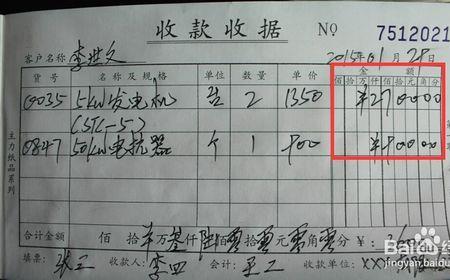 收款收据 NO 7512021
客户名称 李世文 2015年01月28日
货号 名称及规格 单位 数量 单价 金额
佰拾万仟佰拾元角分
00035 5kW发电机 台 2 1350 ¥270000
(STC-5)
0847 50kW电抗器 个 1 900 ¥90000
主力纸品系列
合计金额 佰 拾 万 仟 陆佰零拾零元零角零分 ¥:
填票: 张三 收款人: 李四 会计: 王二 收款单位: XX
Baidu经验
jingyan.baidu.com